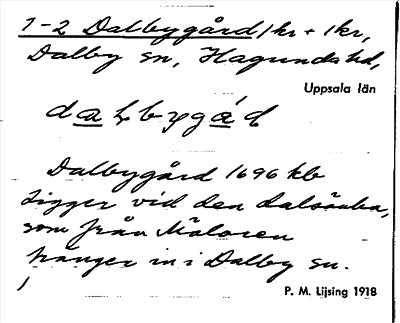 1-2 Dalbygård 1kr + 1kr,
Dalby sn, Hagunda hd,
Uppsala län
dalbygád
Dalbygård 1696 kb
Ligger vid den dalsänka,
som från Mälaren
tränger in i Dalby sn.
P. M. Lijsing 1918